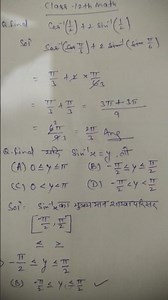 Class-12th Math
Q. Find Cos⁻¹(1/2) + 2 Sin⁻¹(1/2)
Sol Cos⁻¹(Cos π/3) + 2 Sin⁻¹(Sin π/6)
= π/3 + 2 × π/6 3
= π/3 + π/3 = 3π+3π/9
= 6π/9 3 = 2π/3 Ans
Q. Find यदि Sin⁻¹x = y, तो
(A) 0 ≤ y ≤ π (B) -π/2 ≤ y ≤ π/2
(C) 0 < y < π (D) -π/2 < y < π/2
Sol: Sin⁻¹x का मुख्य मान शाखा परिसर
[-π/2, π/2]
≤ ≥
-π/2 ≤ y ≤ π/2
(B) -π/2 ≤ y ≤ π/2 ✓